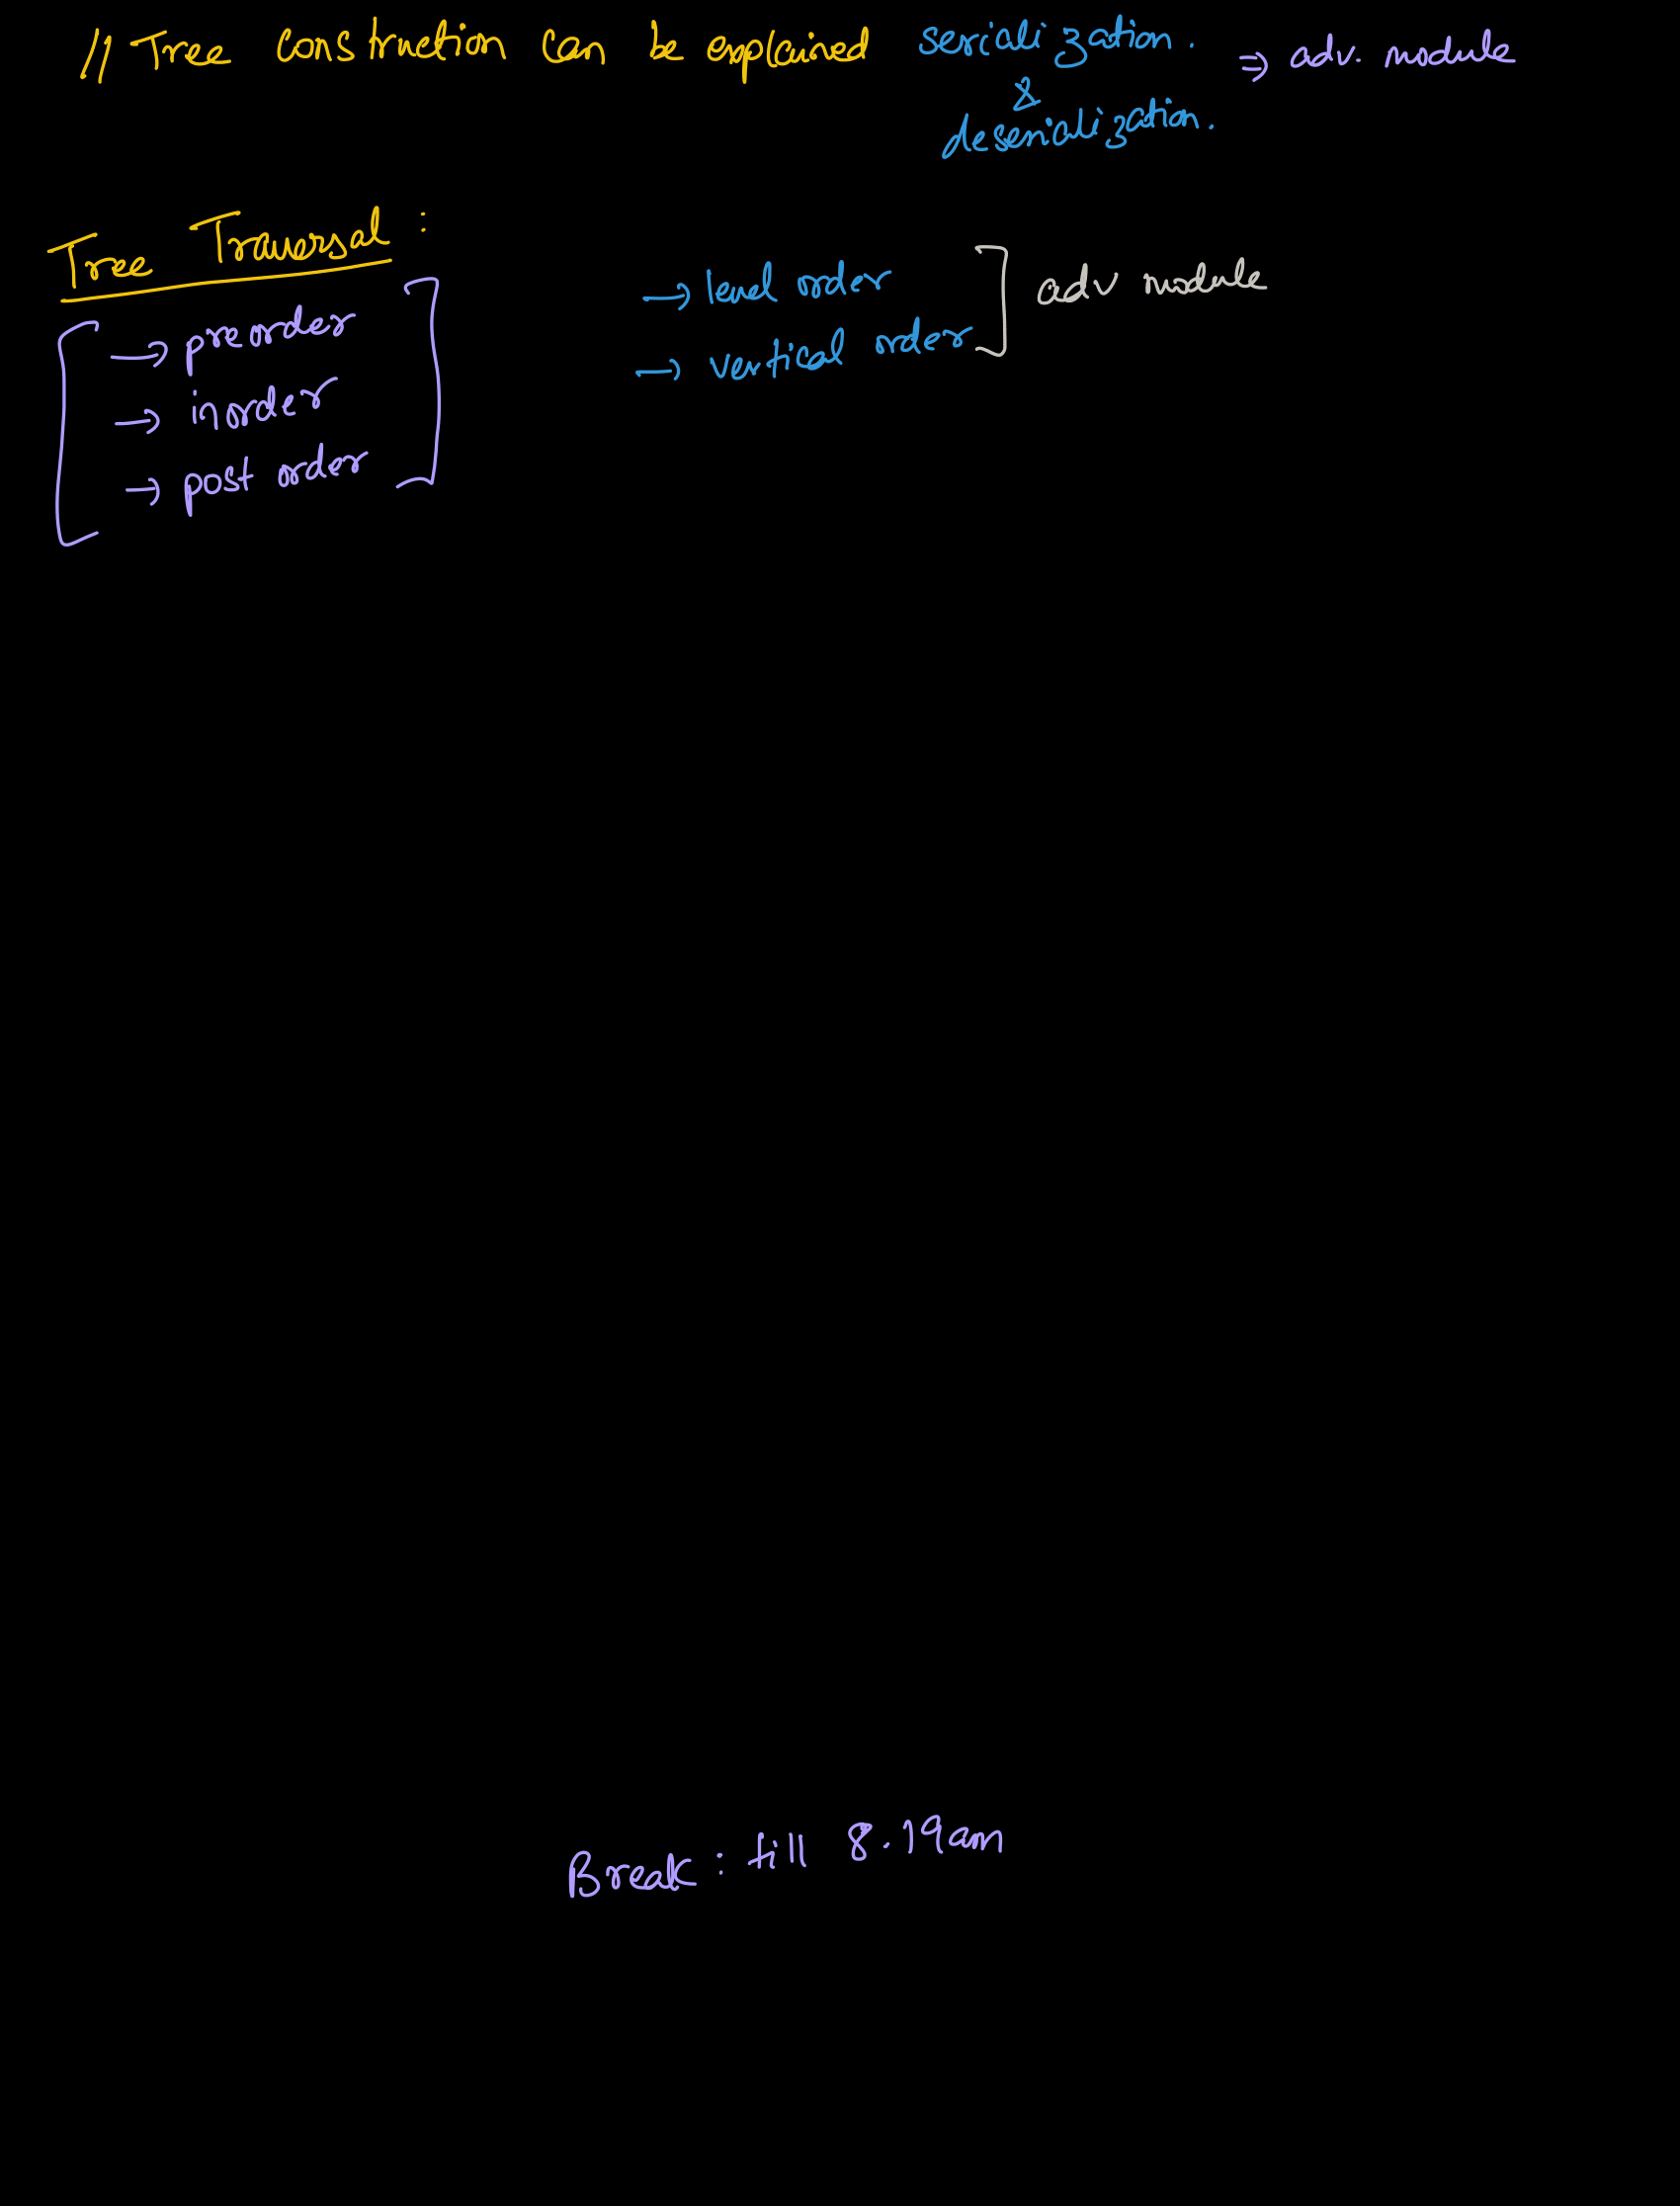 // Tree construction can be explained serialization. ⇒ adv. module
&
deserialization.
Tree Traversal :
→ preorder
→ inorder
→ post order
→ level order
→ vertical order
adv module
Break : till 8.19am